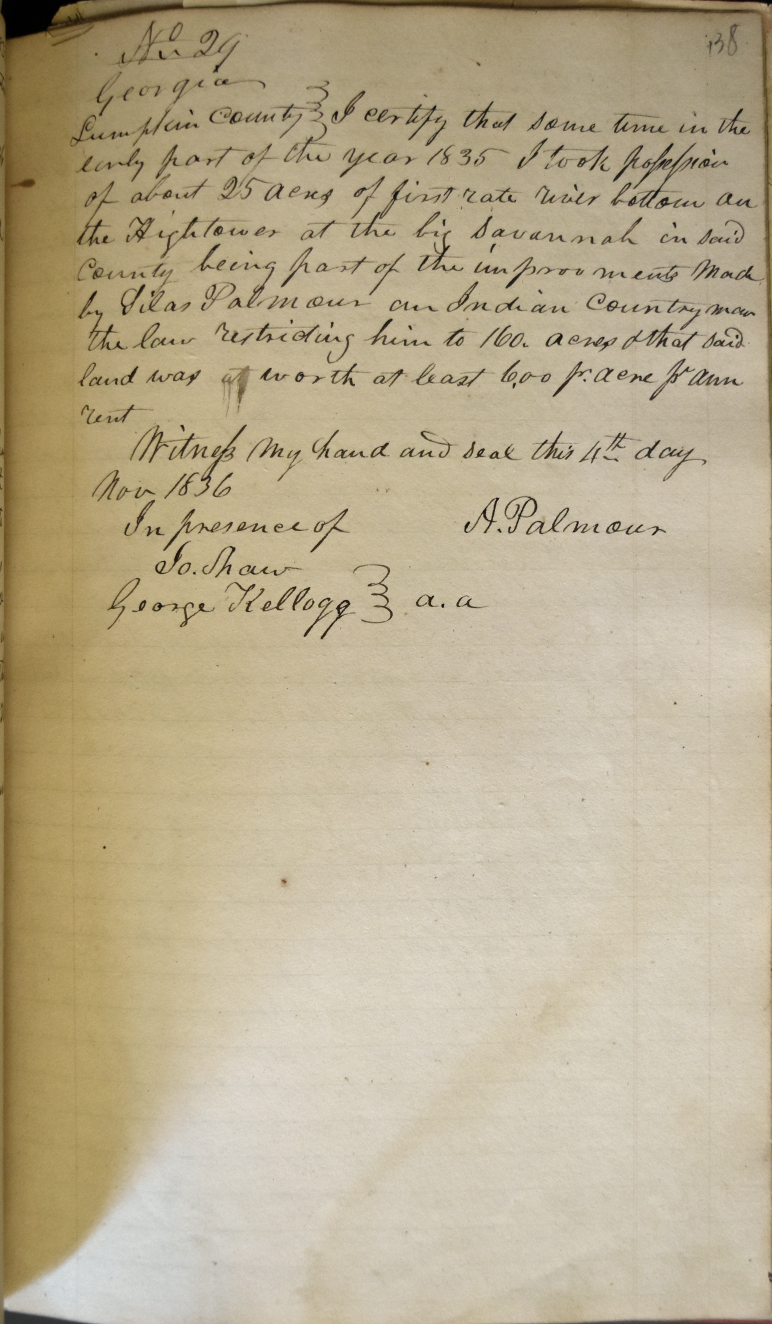 138
No. 29
Georgia
Lumpkin County } I certify that some time in the
early part of the year 1835 I took possession
of about 25 acres of first rate river bottom on
the Hightower at the big Savannah in said
County being part of the improvments Made
by Silas Palmour an Indian Countryman
the law restriding him to 160. acres & that said
land was worth at least 6,00 pr. acre pr ann
rent
Witness my hand and seal this 4th day
Nov 1836
In presence of A. Palmour
Jo. Shaw
George Kellogg } a. a